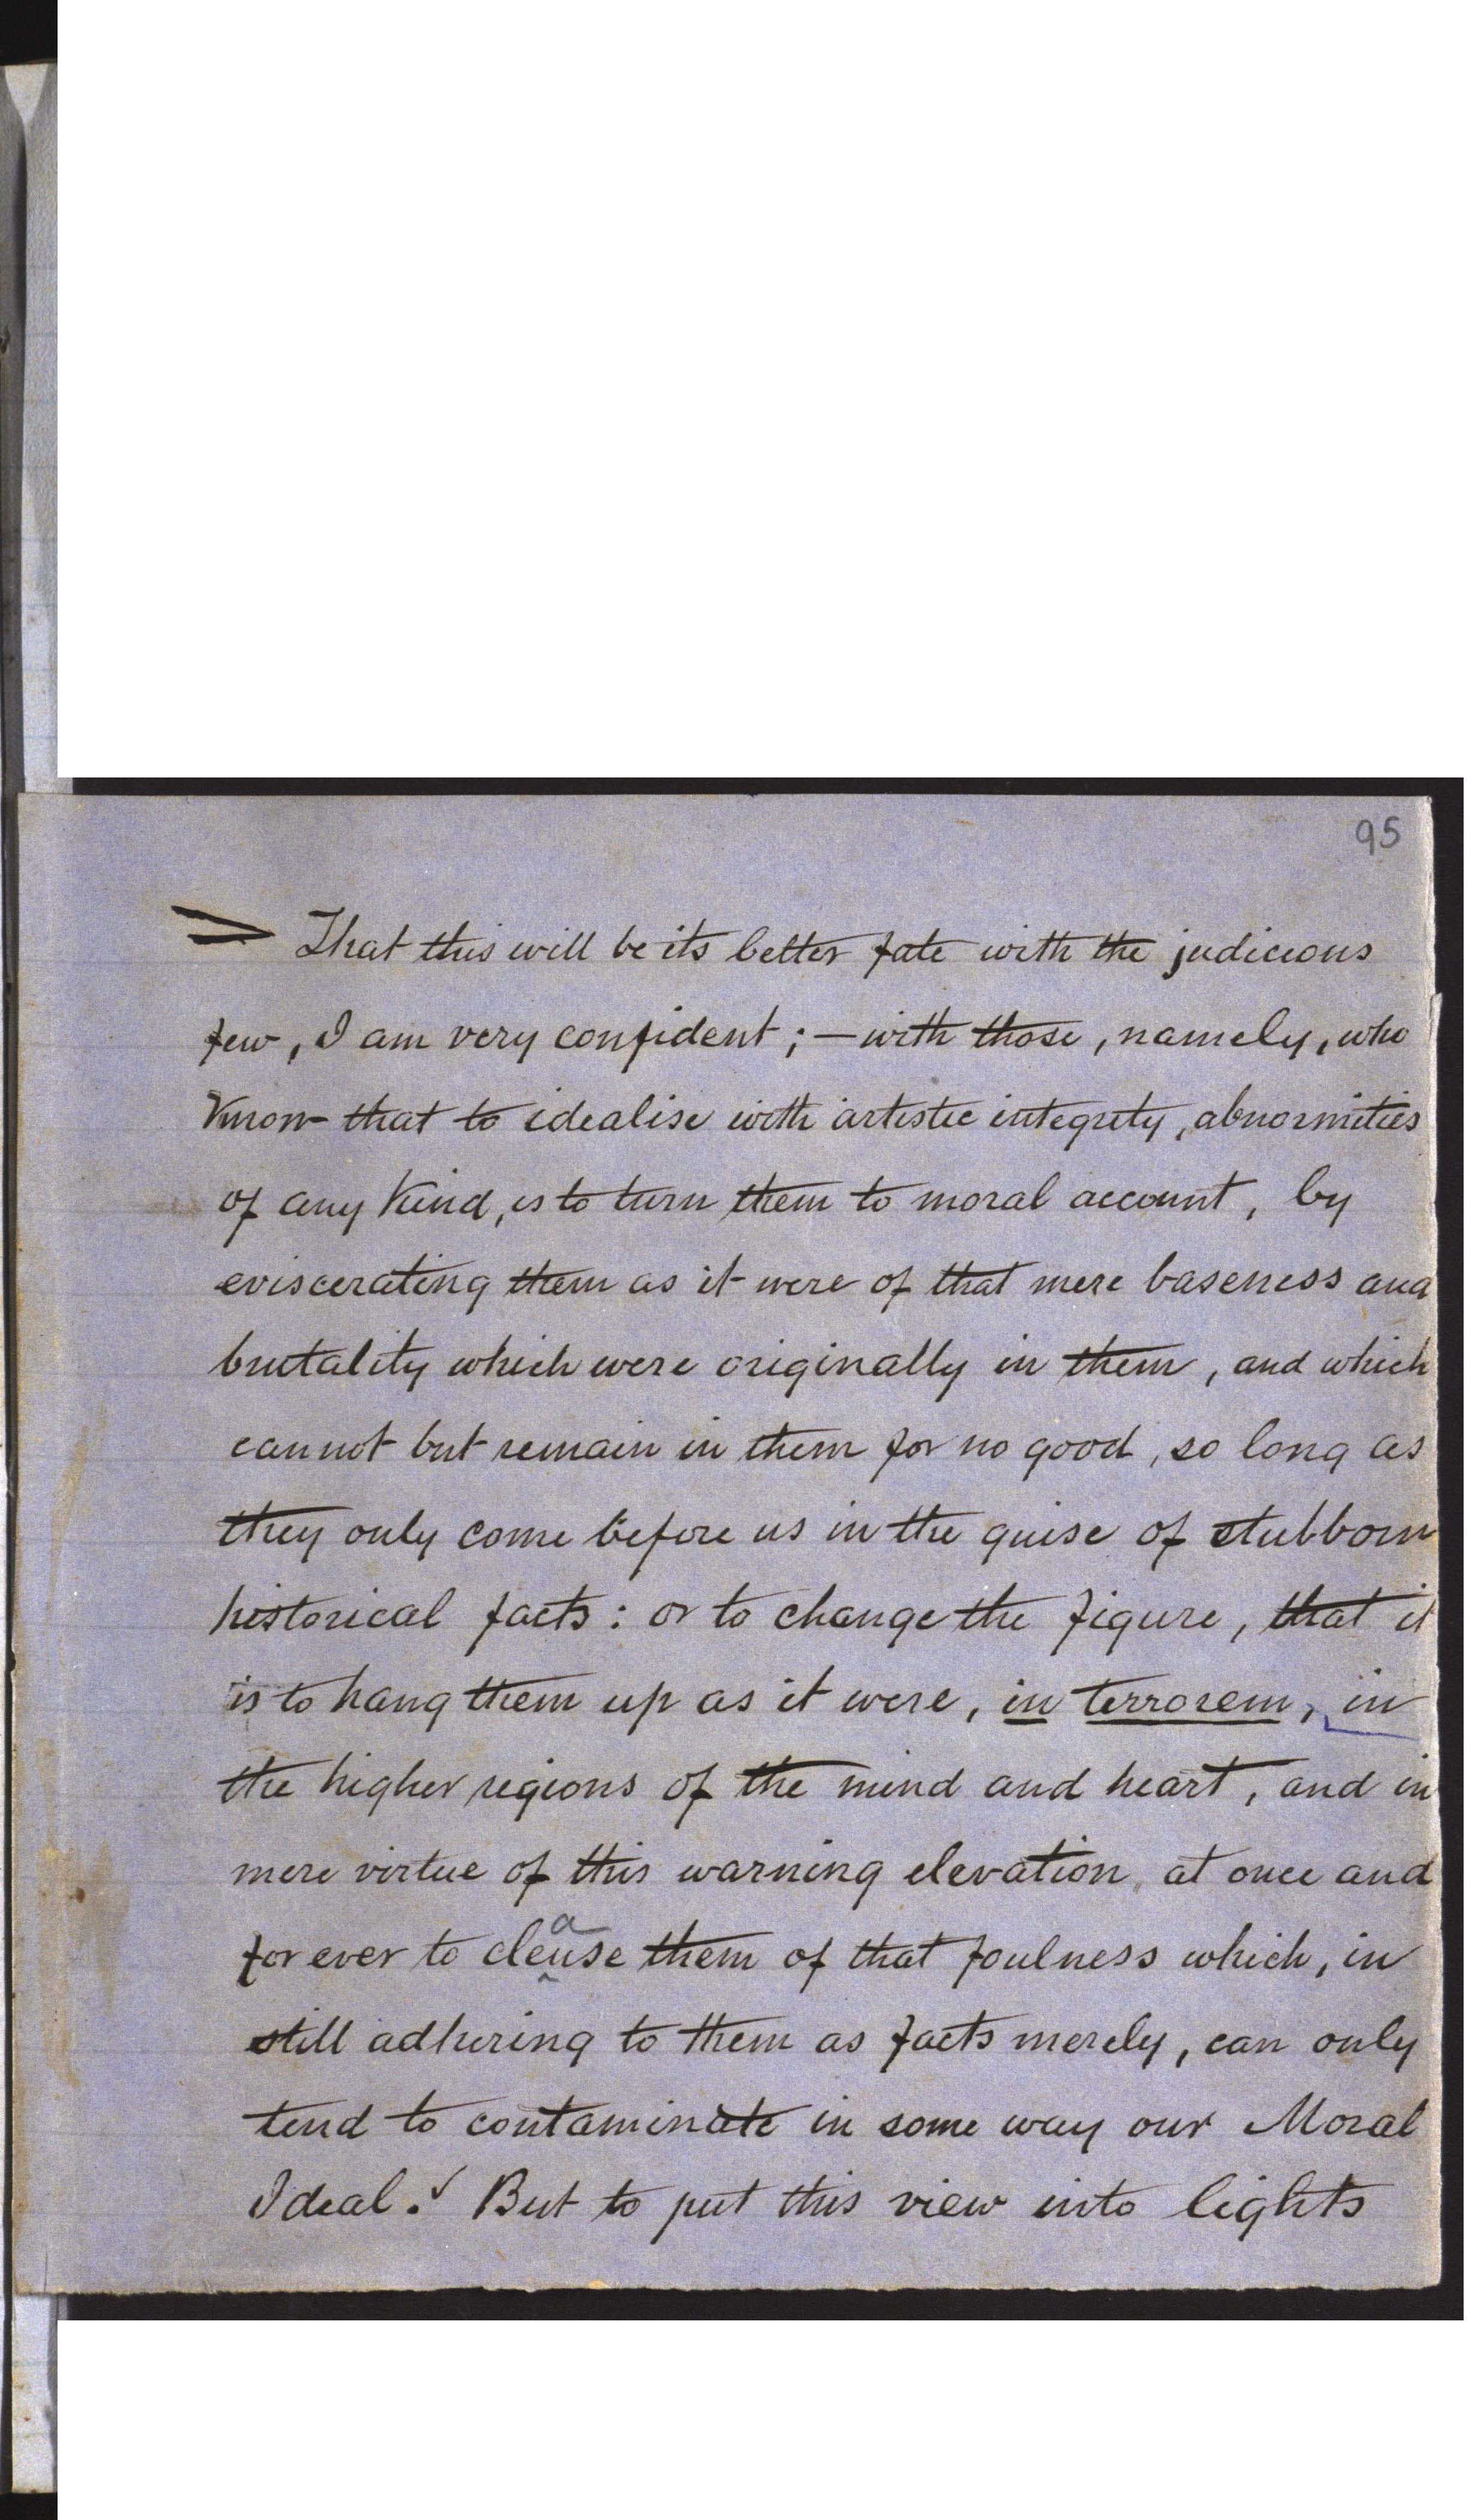 95
That this will be its better fate with the judicious
few, I am very confident; — with those, namely, who
know that to idealise with artistic integrity, abnormities
of any kind, is to turn them to moral account, by
eviscerating them as it were of that mere baseness and
brutality which were originally in them, and which
cannot but remain in them for no good, so long as
they only come before us in the guise of stubborn
historical facts: or to change the figure, that it
is to hang them up as it were, in terrorem, in
the higher regions of the mind and heart, and in
mere virtue of this warning elevation, at once and
for ever to cleanse them of that foulness which, in
still adhering to them as facts merely, can only
tend to contaminate in some way our Moral
Ideal. But to put this view into lights